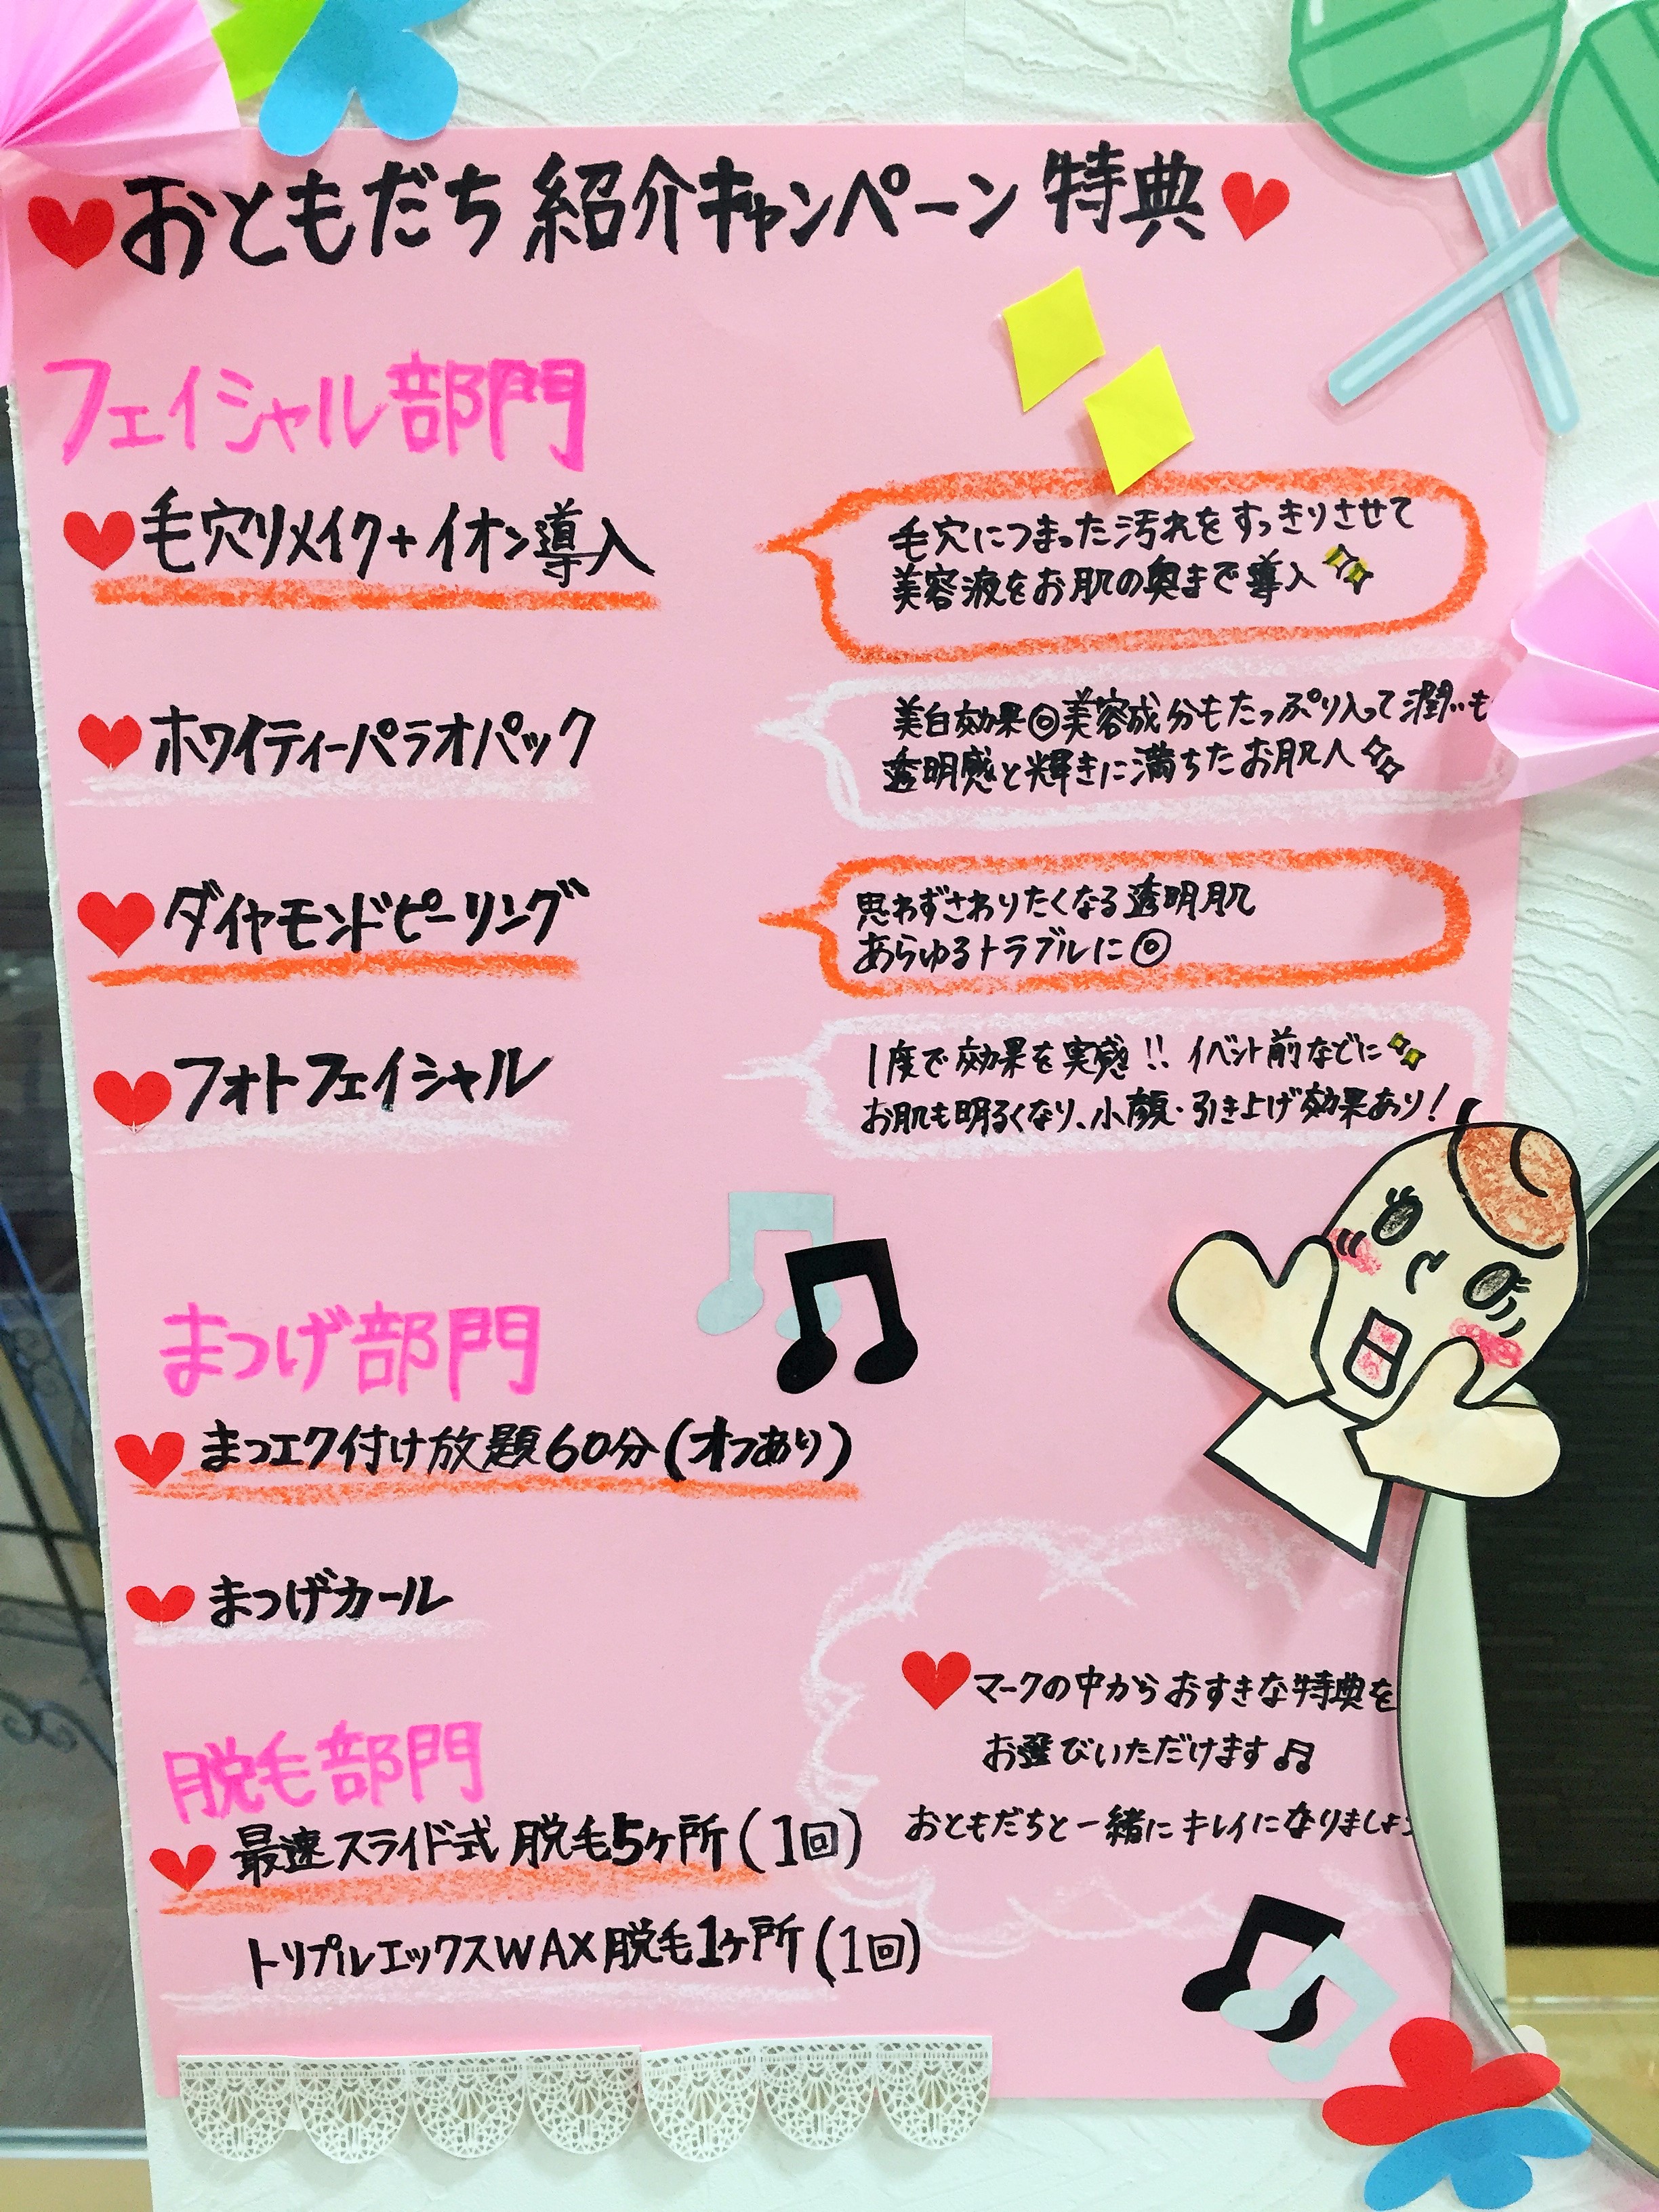 ♥おともだち紹介キャンペーン特典♥
フェイシャル部門
♥毛穴リメイク+イオン導入
毛穴につまった汚れをすっきりさせて
美容液をお肌の奥まで導入
♥ホワイティーパラオパック
美白効果◎美容成分もたっぷり入って潤いも
透明感と輝きに満ちたお肌へ
♥ダイヤモンドピーリング
思わずさわりたくなる透明肌
あらゆるトラブルに◎
♥フォトフェイシャル
1度で効果を実感!! イベント前などに
お肌も明るくなり、小顔・引き上げ効果あり!
まつげ部門
♥まつエク付け放題60分(オフあり)
♥まつげカール
♥マークの中からおすきな特典を
お選びいただけます♫
おともだちと一緒にキレイになりましょ
脱毛部門
♥最速スライド式 脱毛5ヶ所(1回)
トリプルエックスWAX脱毛1ヶ所(1回)